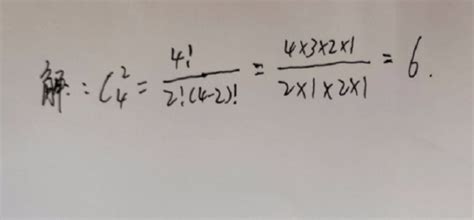 解：C₄² = 4!/2!(4-2)! = 4×3×2×1/2×1×2×1 = 6.